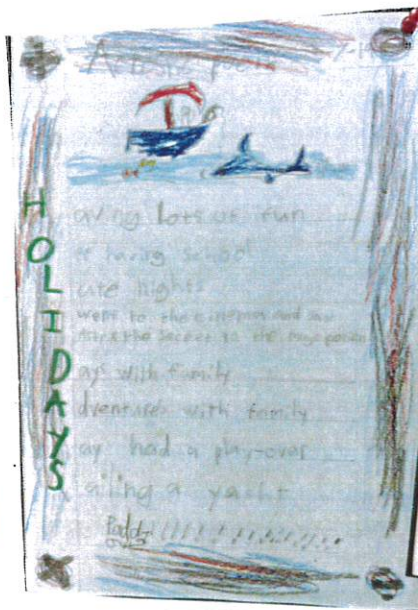 Having lots of fun
O having school
Late nights
I went to the cinemas and saw
the secret to the
Days with family
Adventures with family
Yay had a play-over
Sailing a yacht
Paddy